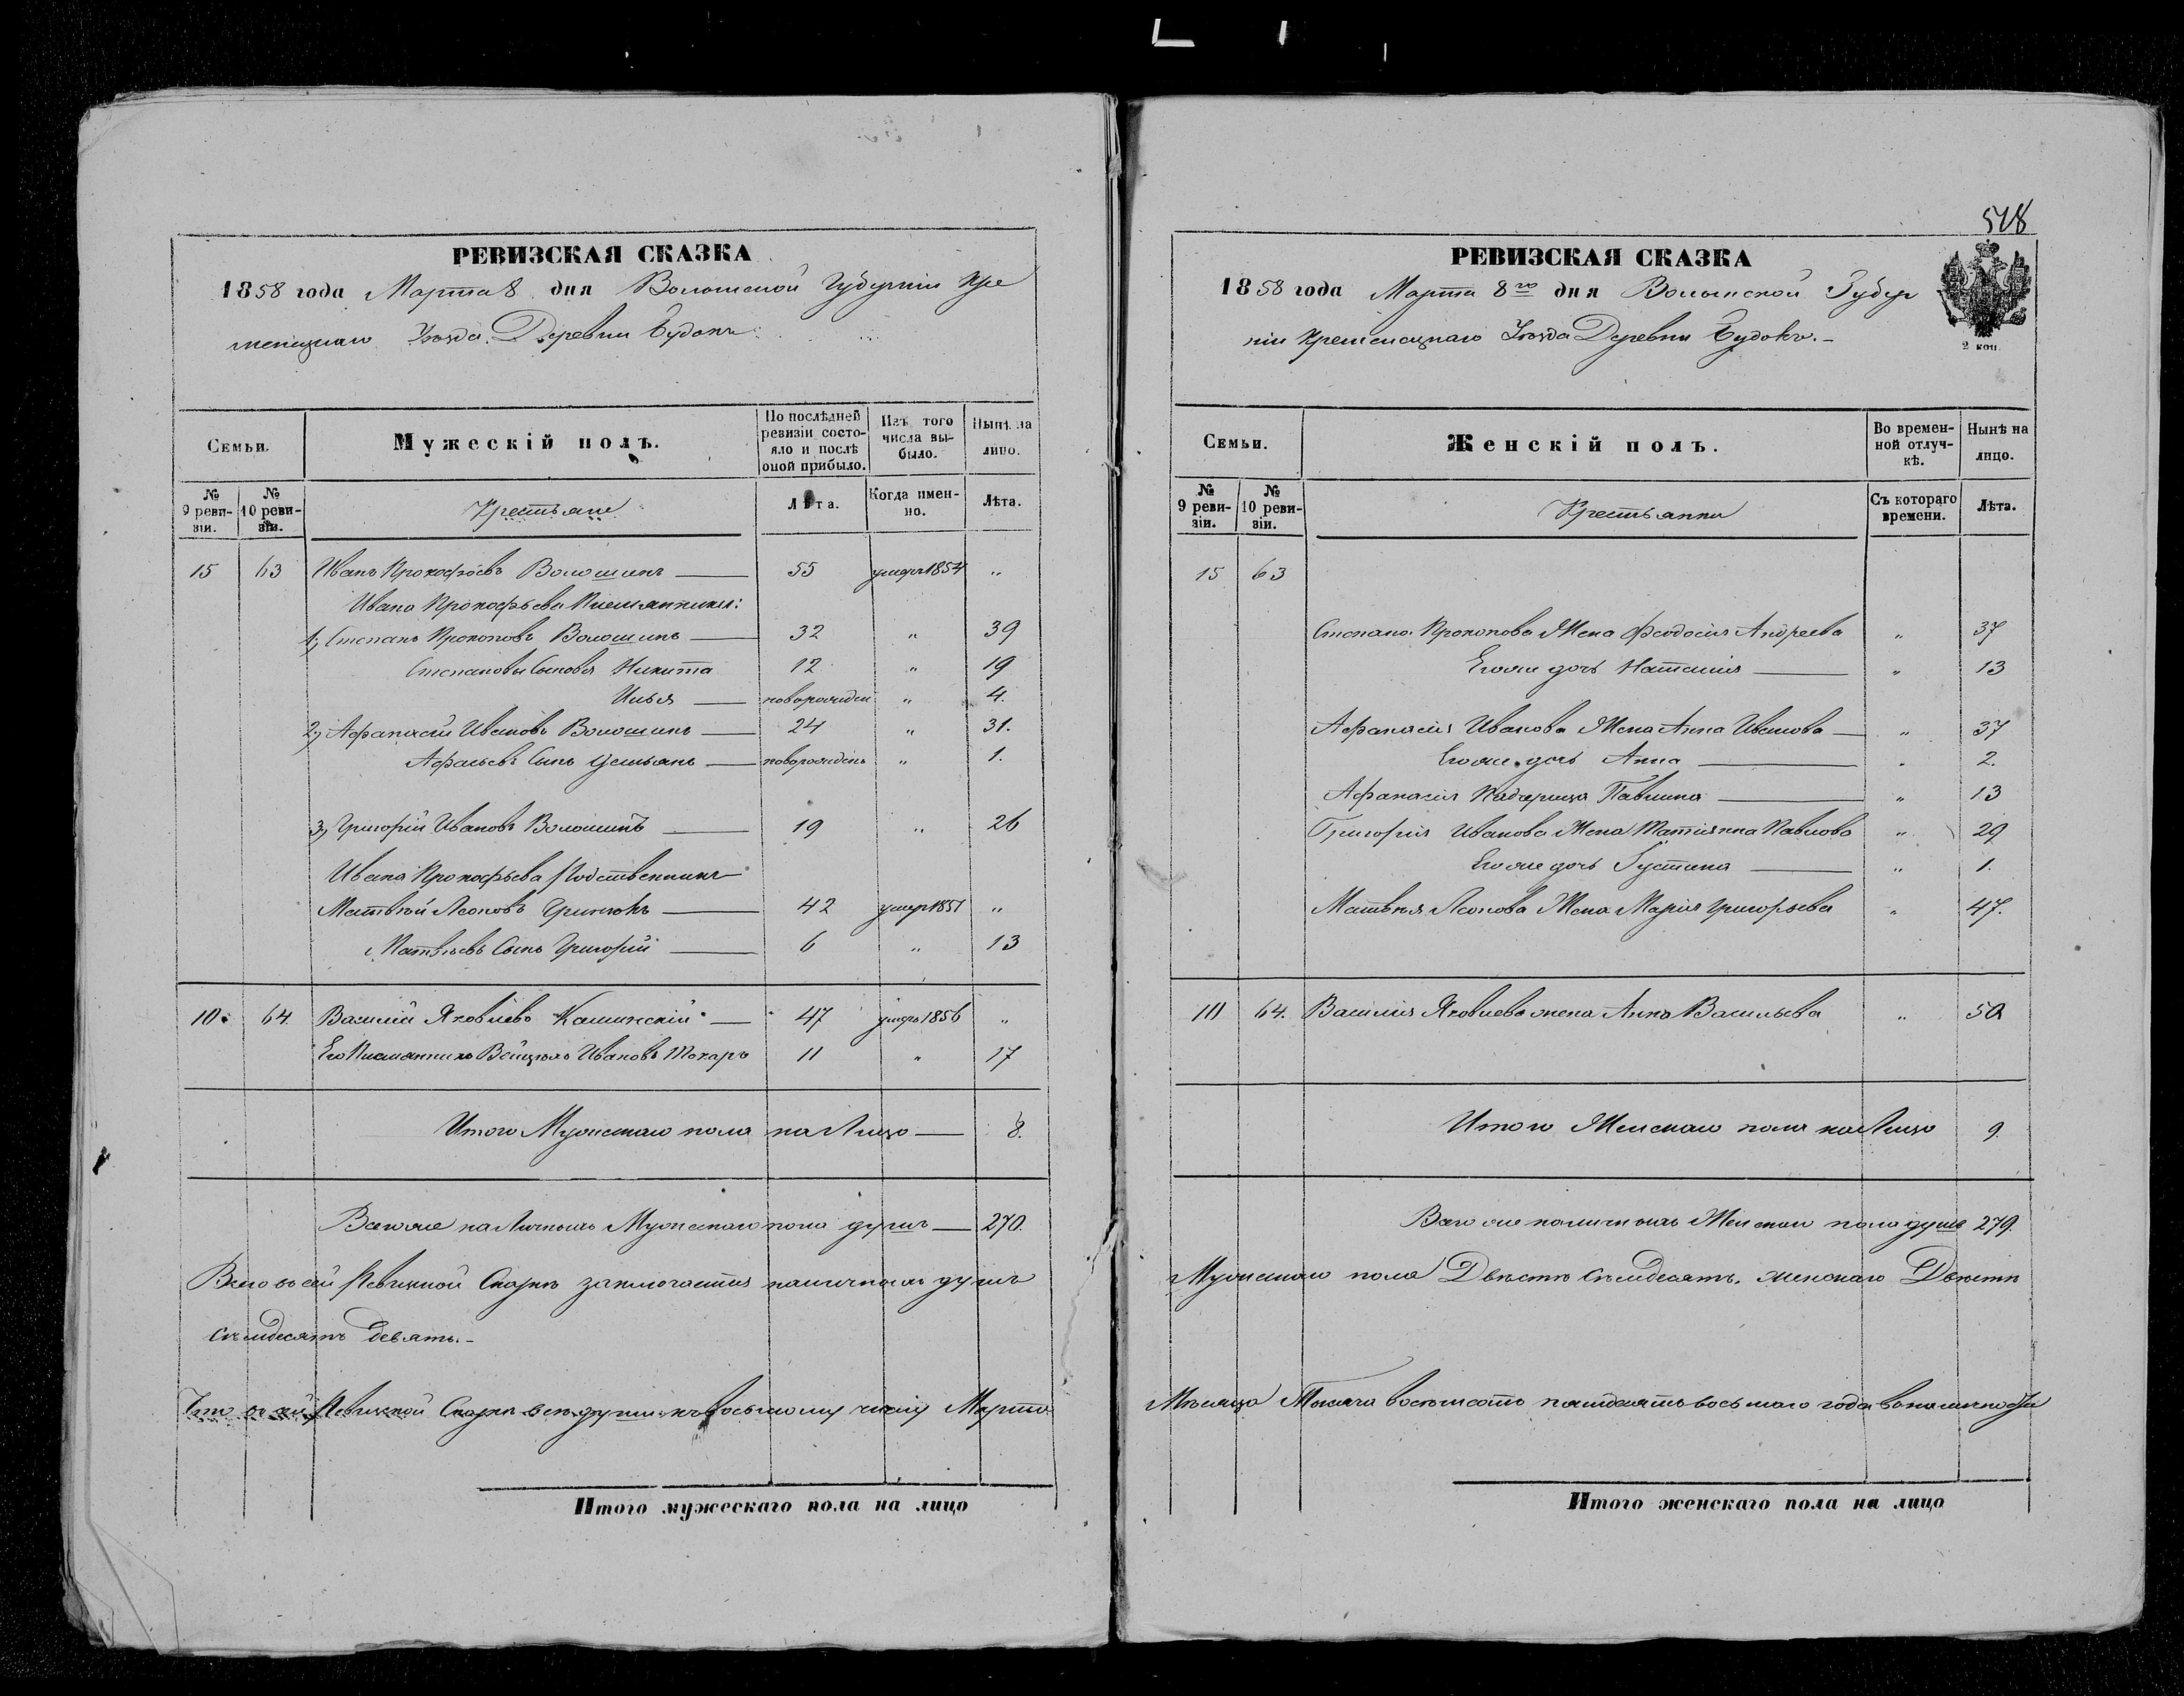 РЕВИЗСКАЯ СКАЗКА
1858 года Марта 8 дня Волынской Губернiи Кре
менецкаго Уѣзда Деревни Будокъ
Семьи.
Мужескiй полъ.
По послѣдней ревизiи состояло и послѣ оной прибыло.
Изъ того числа выбыло.
Нынѣ на лицо.
№ 9 ревизiи.
№ 10 ревизiи.
Крестьяне
Лѣта.
Когда именно.
Лѣта.
15 63 Иванъ Прокофьевъ Волошинъ — 55 умеръ 1854 „
Ивана Прокофьева Племянники:
1, Степанъ Прокоповъ Волошинъ — 32 „ 39
Степановы Сыновья Никита 12 „ 19
Илья — новорожден „ 4.
2, Афанасiй Ивановъ Волошинъ — 24 „ 31.
Сынъ Демьянъ — новорожденъ „ 1.
3, Григорiй Ивановъ Волошинъ — 19 „ 26
Ивана Прокофьева Родственникъ
Матвѣй Леоновъ — 42 умеръ 1851 „
Матвѣевъ Сынъ Григорiй — 6 „ 13
10. 64. Василiй Яковлевъ Каминскiй — 47 умеръ 1856 „
Его Племянникъ Войцѣхъ Ивановъ Токаръ 11 „ 17
Итого Мужескаго пола на Лицо — 8.
Всего же наличныхъ Мужескаго пола душъ — 270.
Всего въ сей Ревизкой Сказкѣ заключается наличныхъ душъ
семдесятъ девять.-
Что въ сей Ревизкой Сказкѣ всѣ души къ восьмому числу Марта
Итого мужескаго пола на лицо
548
РЕВИЗСКАЯ СКАЗКА
1858 года Марта 8го дня Волынской Губер
нiи Кременецкаго Уѣзда Деревни Будокъ.-
2 коп.
Семьи.
Женскiй полъ.
Во временной отлучкѣ.
Нынѣ на лицо.
№ 9 ревизiи.
№ 10 ревизiи.
Крестьянки
Съ котораго времени.
Лѣта.
15 63
Степана Прокопова Жена Феодосiя Андреева „ 37
Егоже дочь Наталiя — „ 13
Афанасiя Иванова Жена Анна Иванова — „ 37
Егоже дочь Анна — „ 2.
Афанасiя Падчерица Павлина — „ 13
Григорiя Иванова Жена Татiянна Павлова „ 29
Егоже дочь Густина — „ 1.
Матвѣя Леонова Жена Марiя Григорьева „ 47.
10 64. Василiя Яковлева жена Анна Васильева „ 50
Итого Женскаго пола на Лицо 9.
Всего же наличныхъ Женскаго пола душъ 279.
Мужескаго пола Двѣсти семдесятъ. женскаго Двѣсти
Мѣсяца Тысяча восемьсотъ пятидесятъ восьмаго года въ наличности
Итого женскаго пола на лицо